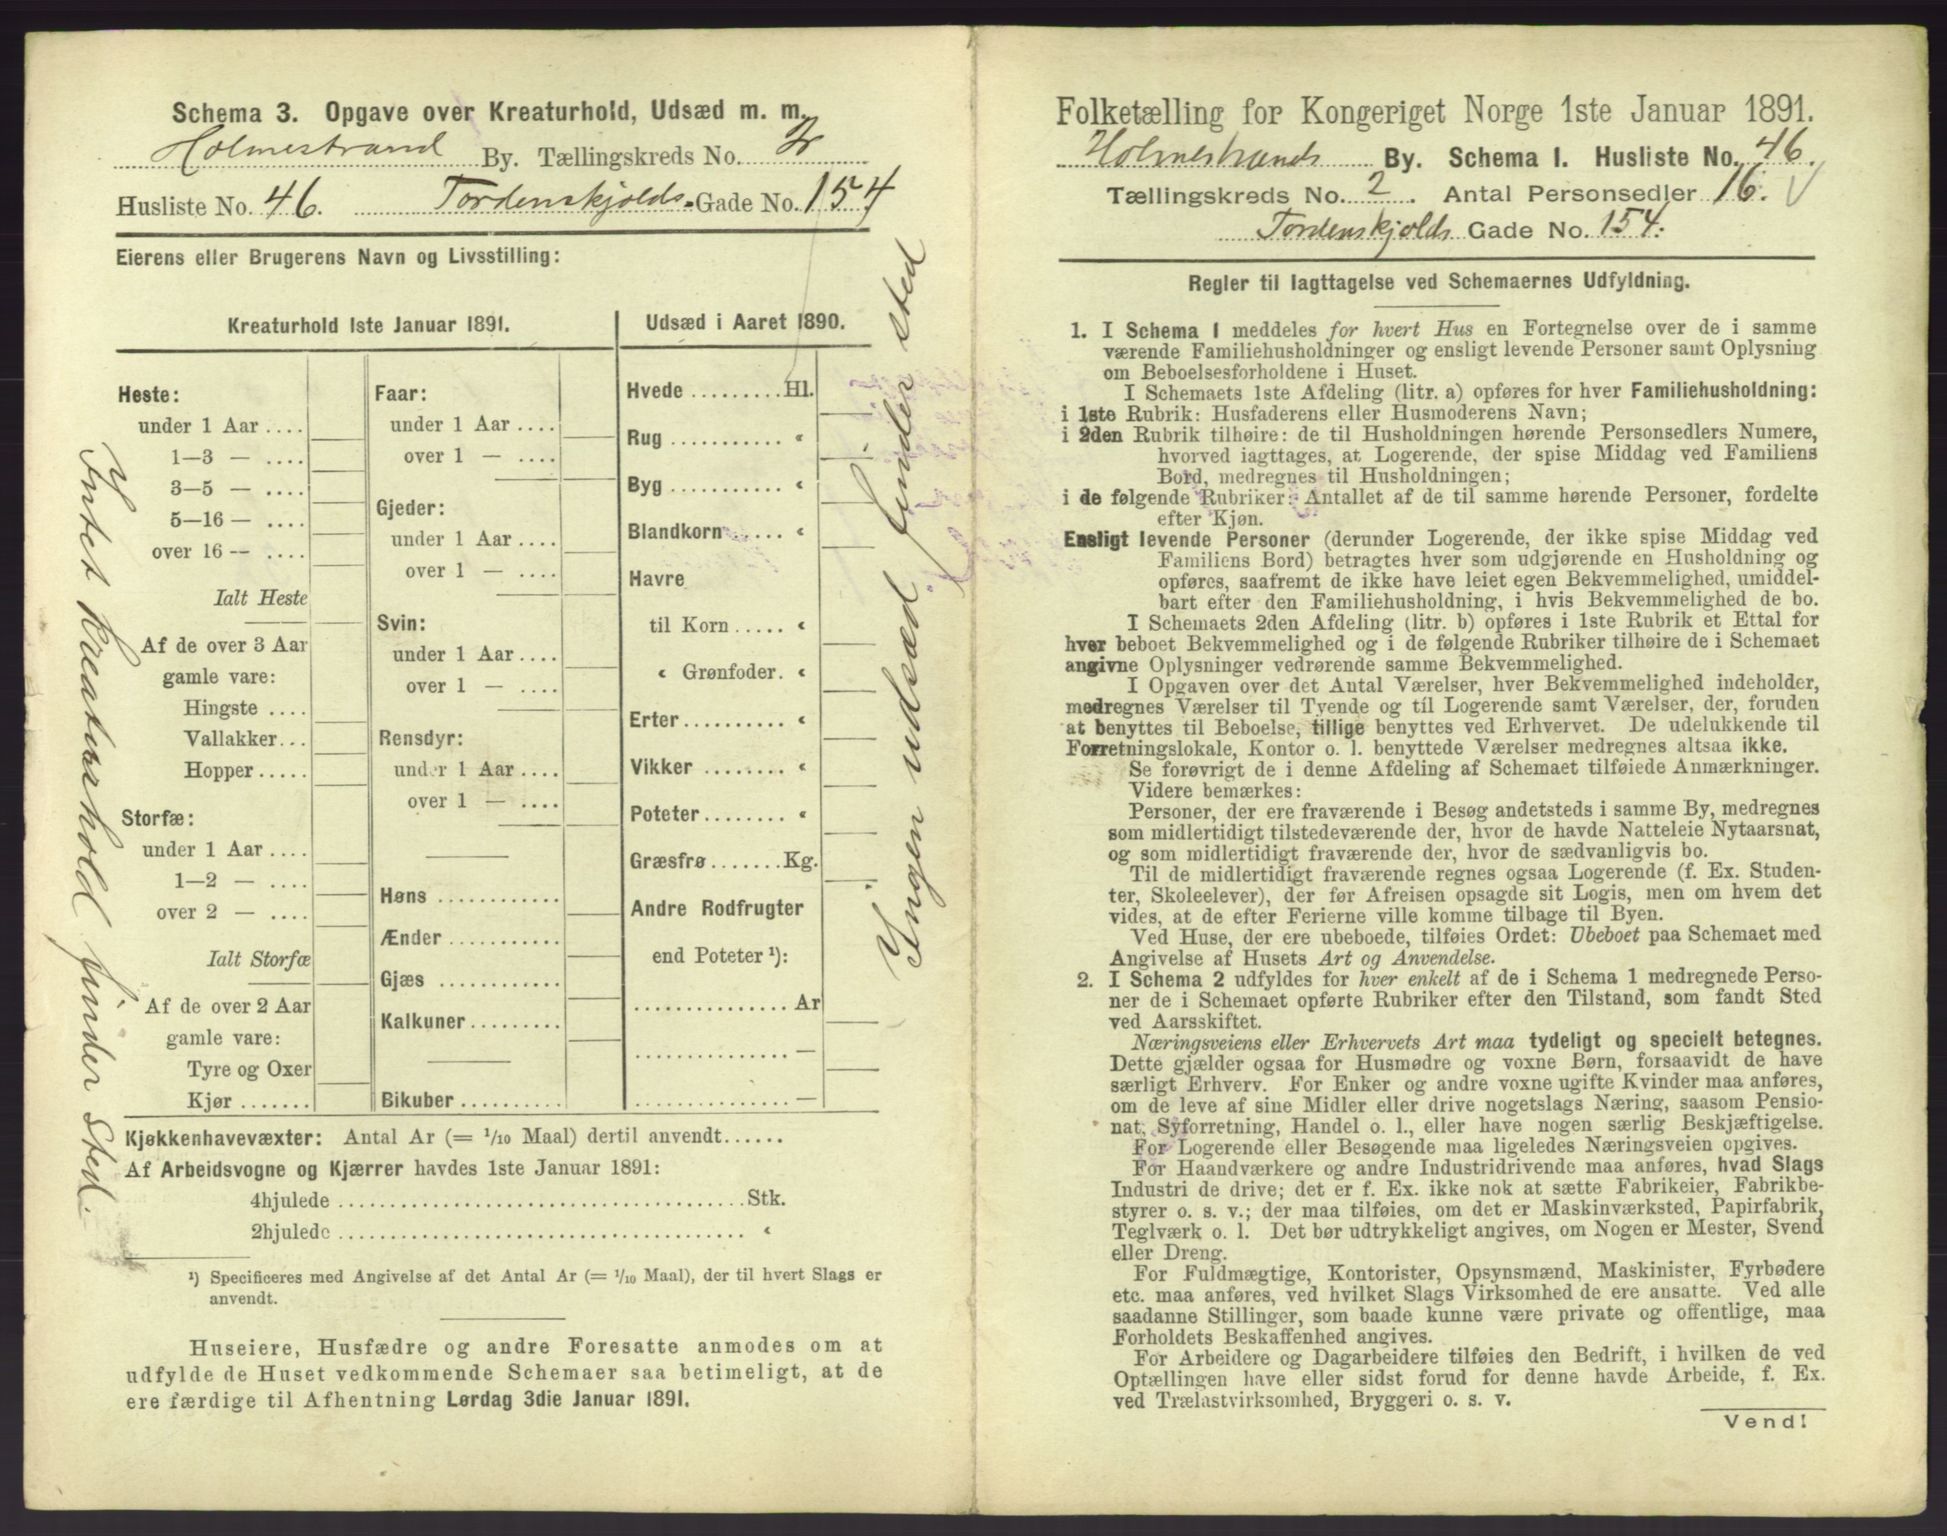 Schema 3. Opgave over Kreaturhold, Udsæd m. m.
Holmestrand By. Tællingskreds No. 2
Husliste No. 46. Tordenskjolds Gade No. 154
Eierens eller Brugerens Navn og Livsstilling:
Kreaturhold 1ste Januar 1891.
Heste:
under 1 Aar ....
1—3 — ....
3—5 — ....
5—16 — ....
over 16 — ....
Ialt Heste
Af de over 3 Aar
gamle vare:
Hingste ....
Vallakker...
Hopper.....
Storfæ:
under 1 Aar ....
1—2 — ....
over 2 — ....
Ialt Storfæ
Af de over 2 Aar
gamle vare:
Tyre og Oxer
Kjør .......
Faar:
under 1 Aar ....
over 1 — ....
Gjeder:
under 1 Aar ....
over 1 — ....
Svin:
under 1 Aar ....
over 1 — ....
Rensdyr:
under 1 Aar ....
over 1 — ....
Høns ............
Ænder ...........
Gjæs ............
Kalkuner.........
Bikuber..........
Udsæd i Aaret 1890.
Hvede .........Hl.
Rug ........... «
Byg ........... «
Blandkorn ..... «
Havre
til Korn ..... «
« Grønfoder. «
Erter .......... «
Vikker ........ «
Poteter........ «
Græsfrø.......Kg.
Andre Rodfrugter
end Poteter ¹):
............... Ar
............... —
............... —
Intet Kreaturhold finder Sted.
Ingen udsæd finder sted
Kjøkkenhavevæxter: Antal Ar (= 1/10 Maal) dertil anvendt......
Af Arbeidsvogne og Kjærrer havdes 1ste Januar 1891:
4hjulede ....................................... Stk.
2hjulede ....................................... «
¹) Specificeres med Angivelse af det Antal Ar (= 1/10 Maal), der til hvert Slags er
anvendt.
Huseiere, Husfædre og andre Foresatte anmodes om at
udfylde de Huset vedkommende Schemaer saa betimeligt, at de
ere færdige til Afhentning Lørdag 3die Januar 1891.
Folketælling for Kongeriget Norge 1ste Januar 1891.
Holmestrands By. Schema 1. Husliste No. 46.
Tællingskreds No. 2. Antal Personsedler 16.
Tordenskjolds Gade No. 154.
Regler til Iagttagelse ved Schemaernes Udfyldning.
1. I Schema 1 meddeles for hvert Hus en Fortegnelse over de i samme
værende Familiehusholdninger og ensligt levende Personer samt Oplysning
om Beboelsesforholdene i Huset.
I Schemaets 1ste Afdeling (litr. a) opføres for hver Familiehusholdning:
i 1ste Rubrik: Husfaderens eller Husmoderens Navn;
i 2den Rubrik tilhøire: de til Husholdningen hørende Personsedlers Numere,
hvorved iagttages, at Logerende, der spise Middag ved Familiens
Bord, medregnes til Husholdningen;
i de følgende Rubriker: Antallet af de til samme hørende Personer, fordelte
efter Kjøn.
Ensligt levende Personer (derunder Logerende, der ikke spise Middag ved
Familiens Bord) betragtes hver som udgjørende en Husholdning og
opføres, saafremt de ikke have leiet egen Bekvemmelighed, umiddel-
bart efter den Familiehusholdning, i hvis Bekvemmelighed de bo.
I Schemaets 2den Afdeling (litr. b) opføres i 1ste Rubrik et Ettal for
hver beboet Bekvemmelighed og i de følgende Rubriker tilhøire de i Schemaet
angivne Oplysninger vedrørende samme Bekvemmelighed.
I Opgaven over det Antal Værelser, hver Bekvemmelighed indeholder,
medregnes Værelser til Tyende og til Logerende samt Værelser, der, foruden
at benyttes til Beboelse, tillige benyttes ved Erhvervet. De udelukkende til
Forretningslokale, Kontor o. l. benyttede Værelser medregnes altsaa ikke.
Se forøvrigt de i denne Afdeling af Schemaet tilføiede Anmærkninger.
Videre bemærkes:
Personer, der ere fraværende i Besøg andetsteds i samme By, medregnes
som midlertidigt tilstedeværende der, hvor de havde Natteleie Nytaarsnat,
og som midlertidigt fraværende der, hvor de sædvanligvis bo.
Til de midlertidigt fraværende regnes ogsaa Logerende (f. Ex. Studen-
ter, Skoleelever), der før Afreisen opsagde sit Logis, men om hvem det
vides, at de efter Ferierne ville komme tilbage til Byen.
Ved Huse, der ere ubeboede, tilføies Ordet: Ubeboet paa Schemaet med
Angivelse af Husets Art og Anvendelse.
2. I Schema 2 udfyldes for hver enkelt af de i Schema 1 medregnede Perso-
ner de i Schemaet opførte Rubriker efter den Tilstand, som fandt Sted
ved Aarsskiftet.
Næringsveiens eller Erhvervets Art maa tydeligt og specielt betegnes.
Dette gjælder ogsaa for Husmødre og voxne Børn, forsaavidt de have
særligt Erhverv. For Enker og andre voxne ugifte Kvinder maa anføres,
om de leve af sine Midler eller drive nogetslags Næring, saasom Pensio-
nat, Syforretning, Handel o. l., eller have nogen særlig Beskjæftigelse.
For Logerende eller Besøgende maa ligeledes Næringsveien opgives.
For Haandværkere og andre Industridrivende maa anføres, hvad Slags
Industri de drive; det er f. Ex. ikke nok at sætte Fabrikeier, Fabrikbe-
styrer o. s. v.; der maa tilføies, om det er Maskinværksted, Papirfabrik,
Teglværk o. l. Det bør udtrykkeligt angives, om Nogen er Mester, Svend
eller Dreng.
For Fuldmægtige, Kontorister, Opsynsmænd, Maskinister, Fyrbødere
etc. maa anføres, ved hvilket Slags Virksomhed de ere ansatte. Ved alle
saadanne Stillinger, som baade kunne være private og offentlige, maa
Forholdets Beskaffenhed angives.
For Arbeidere og Dagarbeidere tilføies den Bedrift, i hvilken de ved
Optællingen have eller sidst forud for denne havde Arbeide, f. Ex.
ved Trælastvirksomhed, Bryggeri o. s. v.
Vend!